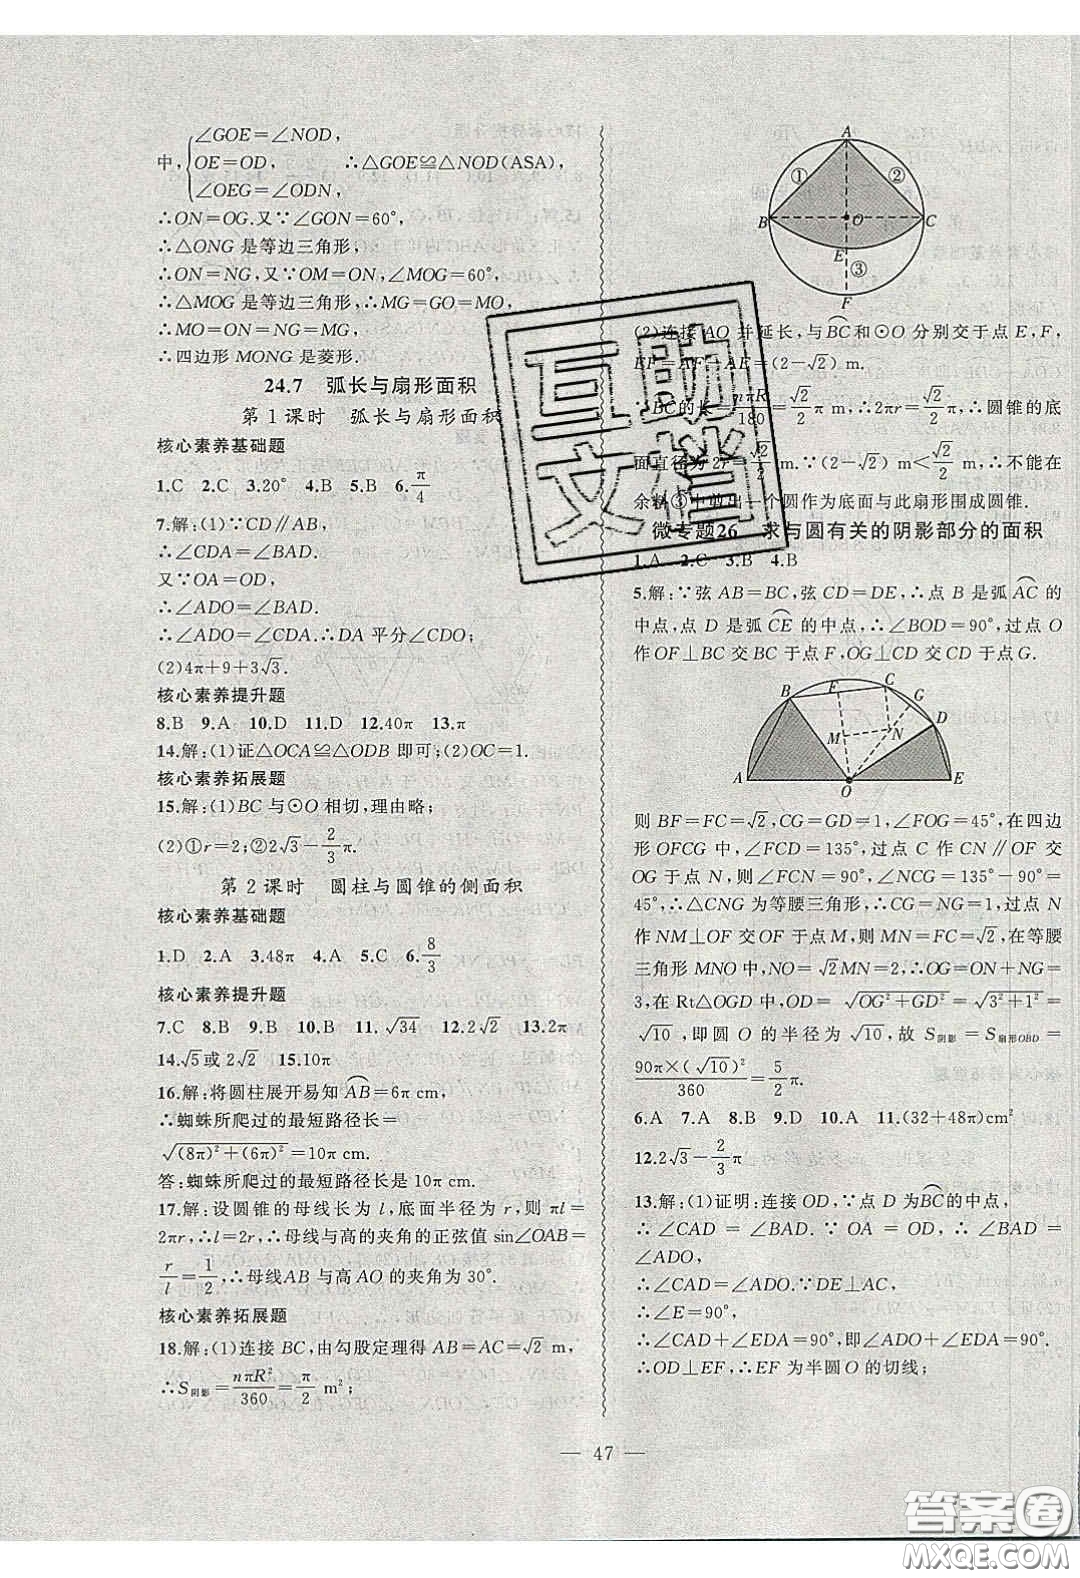 中,{∠GOE=∠NOD,
OE=OD, ∴△GOE≌△NOD(ASA)
∠OEG=∠ODN,
∴ON=OG.又∵∠GON=60°,
∴△ONG 是等边三角形,
∴ON=NG,又∵OM=ON,∠MOG=60°,
∴△MOG 是等边三角形,∴MG=GO=MO,
∴MO=ON=NG=MG,
∴四边形 MONG 是菱形.
24.7 弧长与扇形面积
第 1 课时 弧长与扇形面积
核心素养基础题
1.C 2.C 3.20° 4.B 5.B 6.π/4
7.解:(1)∵CD∥AB,
∴∠CDA=∠BAD.
又∵OA=OD,
∴∠ADO=∠BAD.
∴∠ADO=∠CDA.∴DA 平分∠CDO;
(2)4π+9+3√3.
核心素养提升题
8.B 9.A 10.D 11.D 12.40π 13.π
14.解:(1)证△OCA≌△ODB 即可;(2)OC=1.
核心素养拓展题
15.解:(1)BC 与⊙O 相切,理由略;
(2)①r=2;②2√3-2/3π.
第 2 课时 圆柱与圆锥的侧面积
核心素养基础题
1.D 2.A 3.48π 4.A 5.C 6.8/3
核心素养提升题
7.C 8.B 9.B 10.B 11.√34 12.2√2 13.2π
14.√5或 2√2 15.10π
16.解:将圆柱展开易知 AB=6π cm,
∴蜘蛛所爬过的最短路径长=
√((8π)²+(6π)²)=10π cm.
答:蜘蛛所爬过的最短路径长是10π cm.
17.解:设圆锥的母线长为 l,底面半径为 r,则 πl=
2πr,∴l=2r,∴母线与高的夹角的正弦值 sin∠OAB=
r/l=1/2,∴母线AB 与高 AO 的夹角为 30°.
核心素养拓展题
18.解:(1)连接 BC,由勾股定理得 AB=AC=√2 m,
∴S阴影=nπR²/360=π/2 m²;
A
① ②
B O C
E
③
F
(2)连接 AO 并延长,与BC和⊙O 分别交于点 E,F,
EF=AF-AE=(2-√2) m.
∵BC的长=nπR/180=√2/2π m,∴2πr=√2/2π,∴圆锥的底
面直径为 2r=√2/2 m.∵(2-√2) m<√2/2 m,∴不能在
余料③中剪出一个圆作为底面与此扇形围成圆锥.
微专题26 求与圆有关的阴影部分的面积
1.A 2.C 3.B 4.B
5.解:∵弦 AB=BC,弦 CD=DE,∴点 B 是弧AC的
中点,点 D 是弧CE的中点,∴∠BOD=90°,过点 O
作 OF⊥BC 交 BC 于点 F,OG⊥CD 交 CD 于点 G.
B F C G
M N D
A O E
则 BF=FC=√2,CG=GD=1,∠FOG=45°,在四边
形 OFCG 中,∠FCD=135°,过点 C 作 CN∥OF 交
OG 于点 N,则∠FCN=90°,∠NCG=135°-90°=
45°,∴△CNG 为等腰三角形,∴CG=NG=1,过点 N
作 NM⊥OF 交OF 于点 M,则 MN=FC=√2,在等腰
三角形 MNO 中,NO=√2MN=2,∴OG=ON+NG=
3,在 Rt△OGD 中,OD=√(OG²+GD²)=√(3²+1²)=
√10,即圆 O 的半径为 √10,故 S阴影=S扇形OBD=
90π×(√10)²/360=5/2π.
6.A 7.A 8.B 9.D 10.A 11.(32+48π)cm²
12.2√3-2/3π
13.解:(1)证明:连接 OD,∵点 D 为BC的中点,
∴∠CAD=∠BAD. ∵ OA=OD, ∴∠BAD=
∠ADO,
∴∠CAD=∠ADO.∵DE⊥AC,
∴∠E=90°,
∴∠CAD+∠EDA=90°,即∠ADO+∠EDA=90°.
∴OD⊥EF,∴EF 为半圆 O 的切线;
— 47 —
互助
文档
答案圈
MXQE.COM